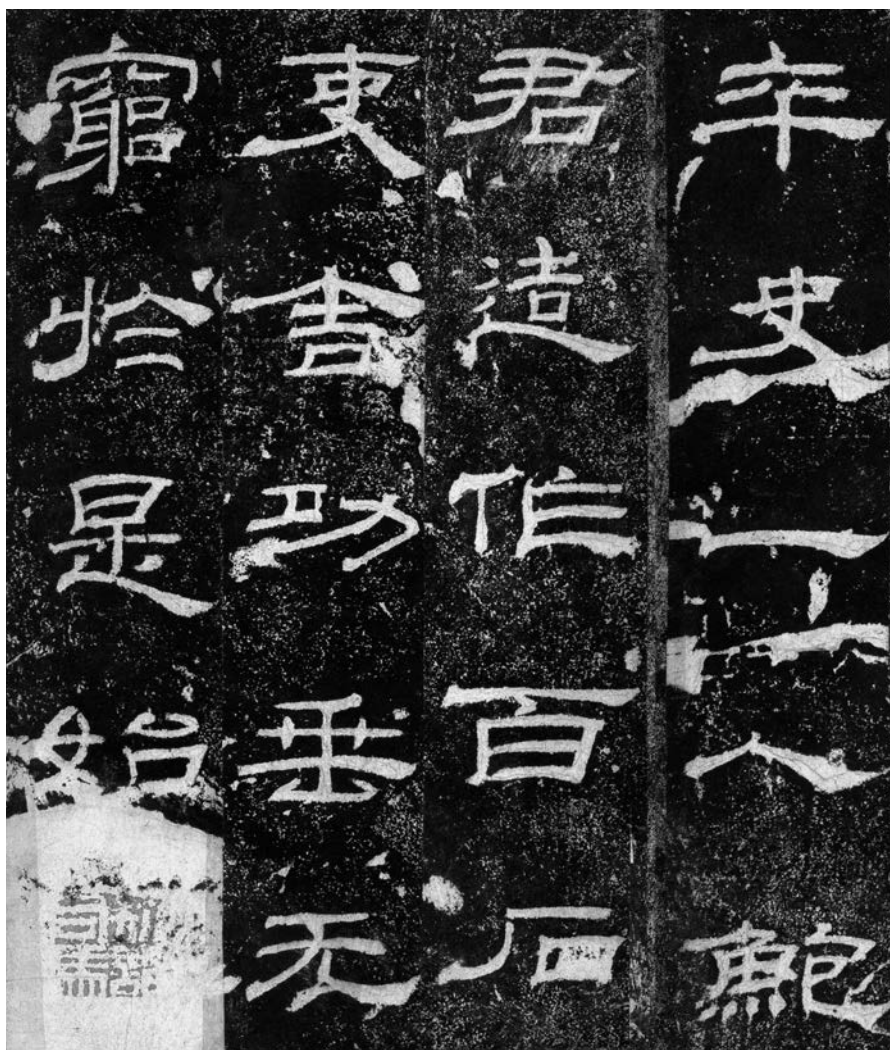 卒史一人鮑
君造作百石
吏舍功垂无
窮於是始